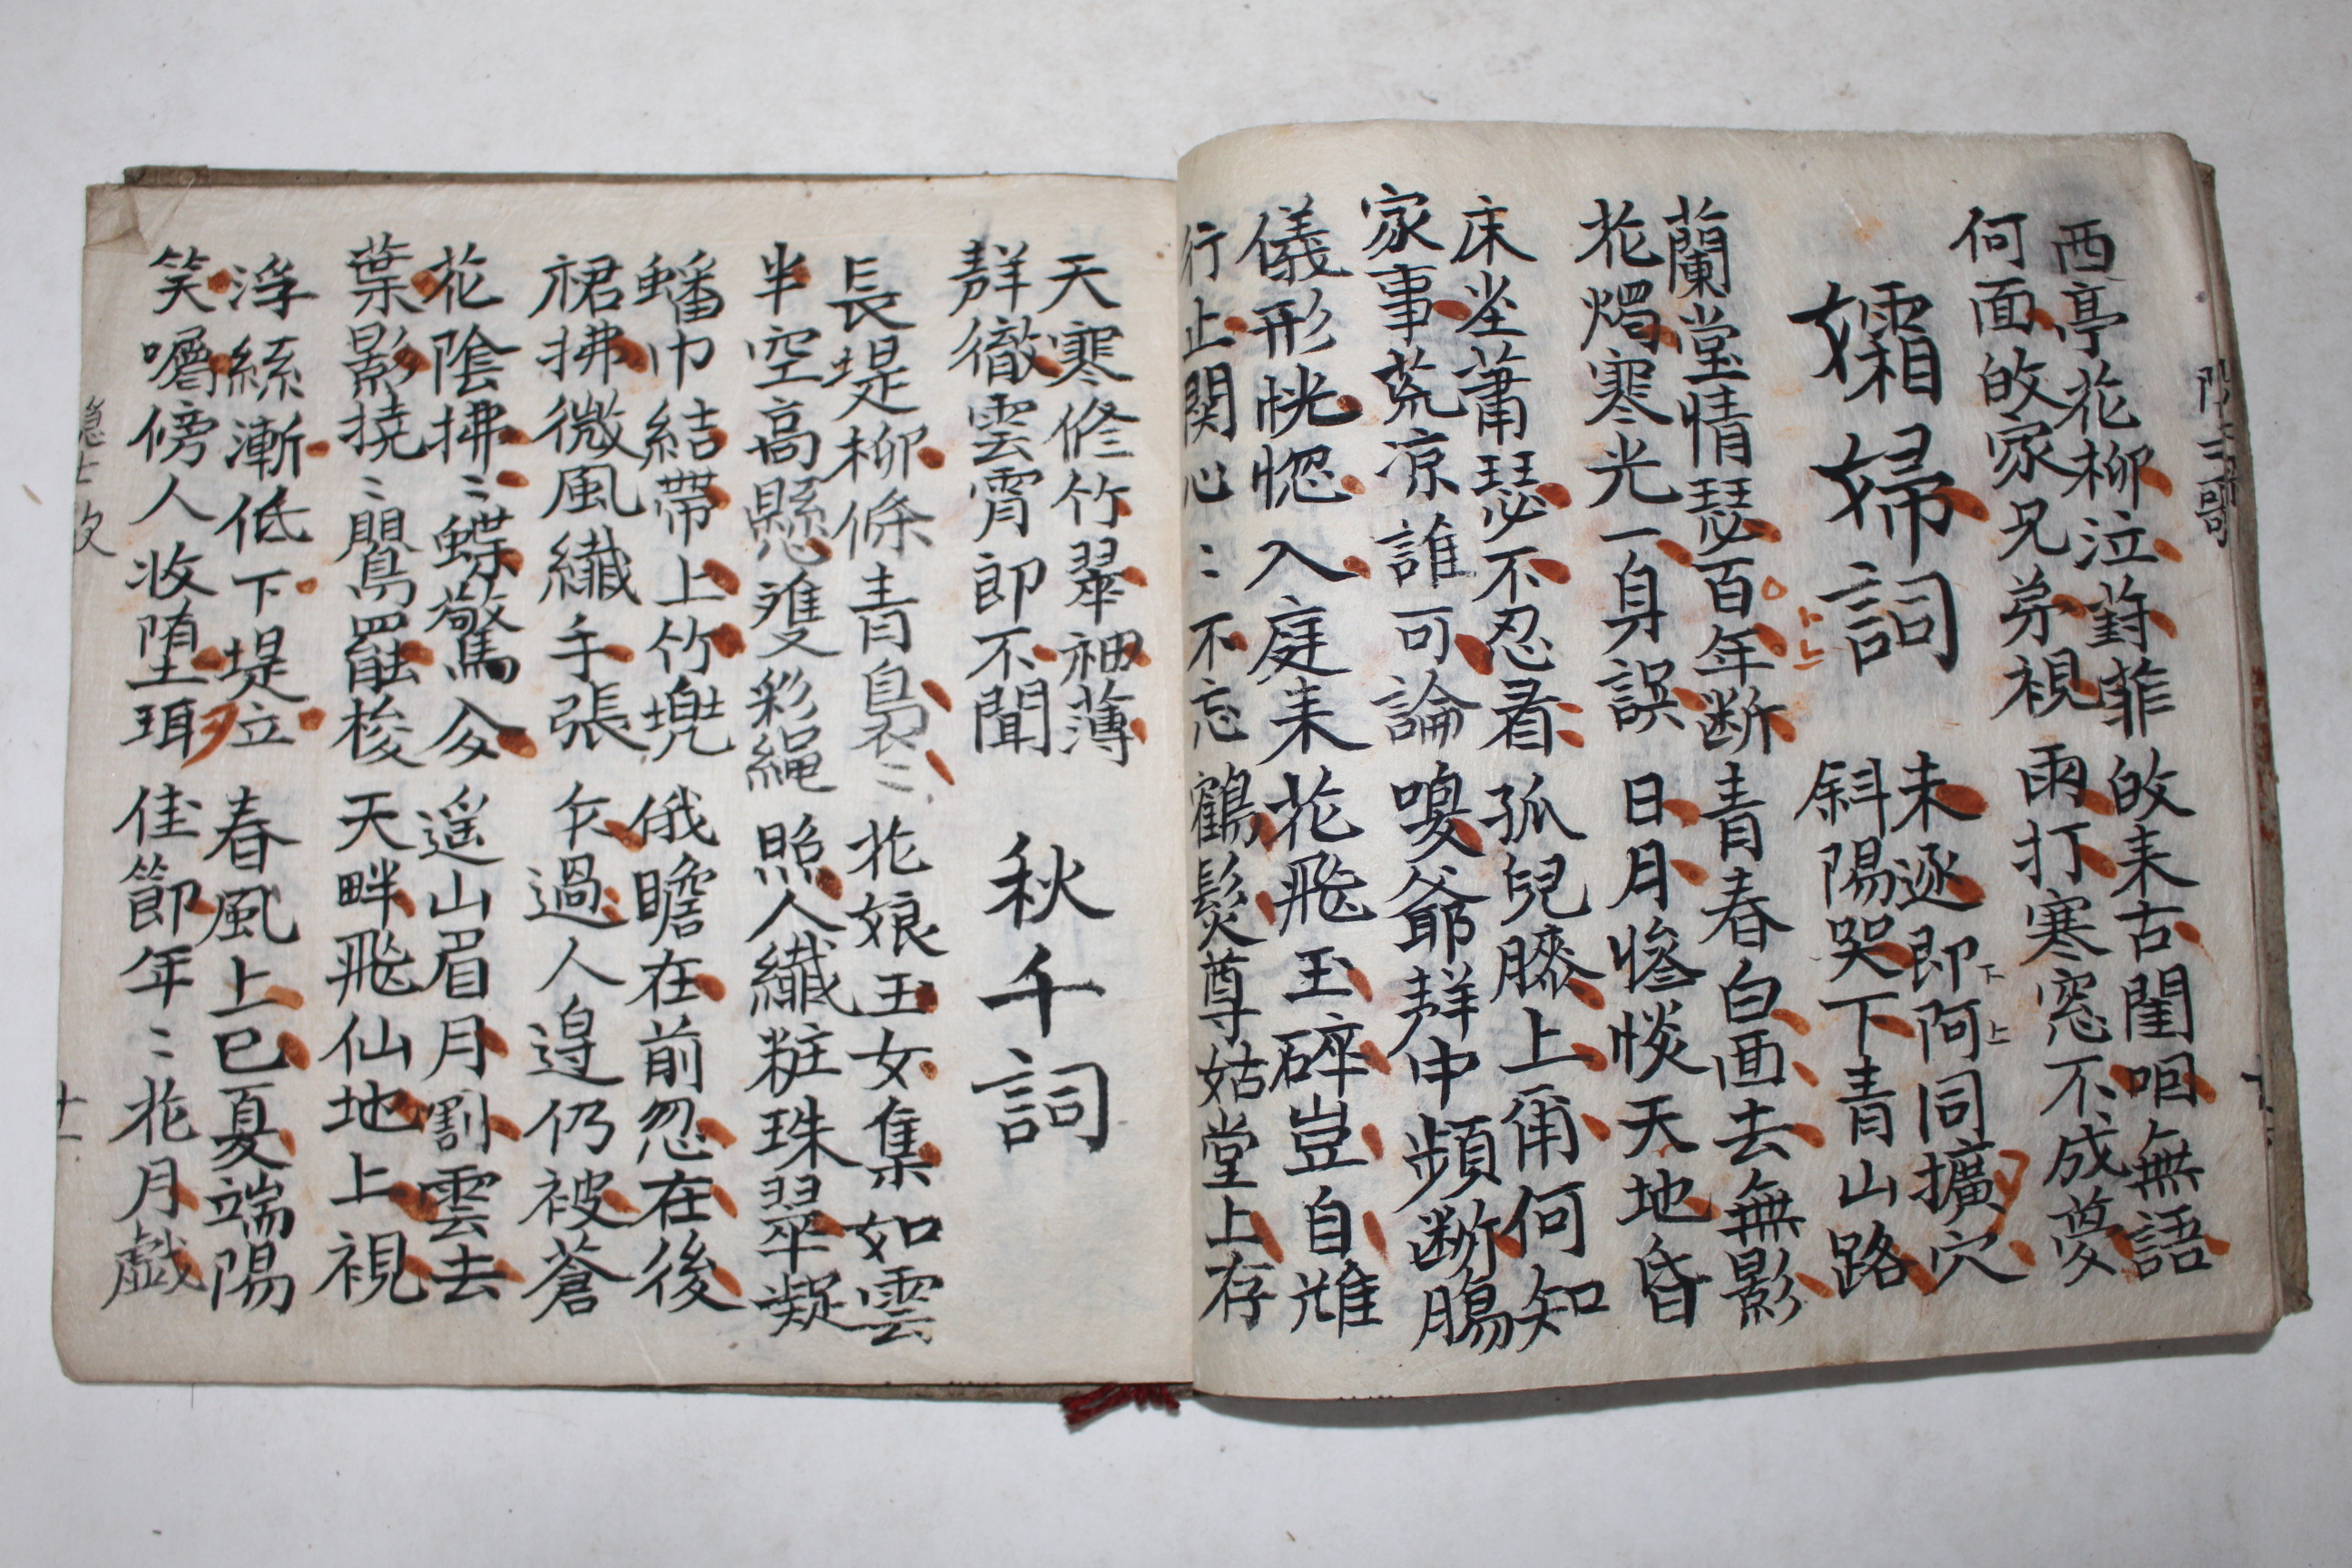 西亭花柳泣葑菲 皈来古閨咽無語
何面皈家兄弟視 雨打寒窓不成夢
孀婦詞
未逐即阿同擴穴
斜陽哭下青山路
蘭堂情瑟百年断 青春白画去無影
花燭寒光一身誤 日月慘惔天地昏
床坐蕭瑟不忍看 孤兒膝上甭何知
家事荒凉誰可論 喚爺聲中頻断腸
儀形恍惚入庭来 花飛玉碎豈自雖
行止関心〻不忘 鶴髮尊姑堂上存
天寒修竹翠袖薄
聲徹雲霄即不聞
秋千詞
長堤柳條青裊〻 花娘玉女集如雲
半空高懸雙彩繩 照人纖粧珠翠凝
蟠巾結帶上竹兠 俄瞻在前忽在後
裙拂微風纖手張 乍過人邊仍被蒼
花陰拂〻蝶驚分 遥山眉月割雲去
葉影撓〻鸎罷梭 天畔飛仙地上視
浮絲漸低下堤立 春風上巳夏端陽
笑嚼傍人收堕珥 佳節年〻花月戲
十一